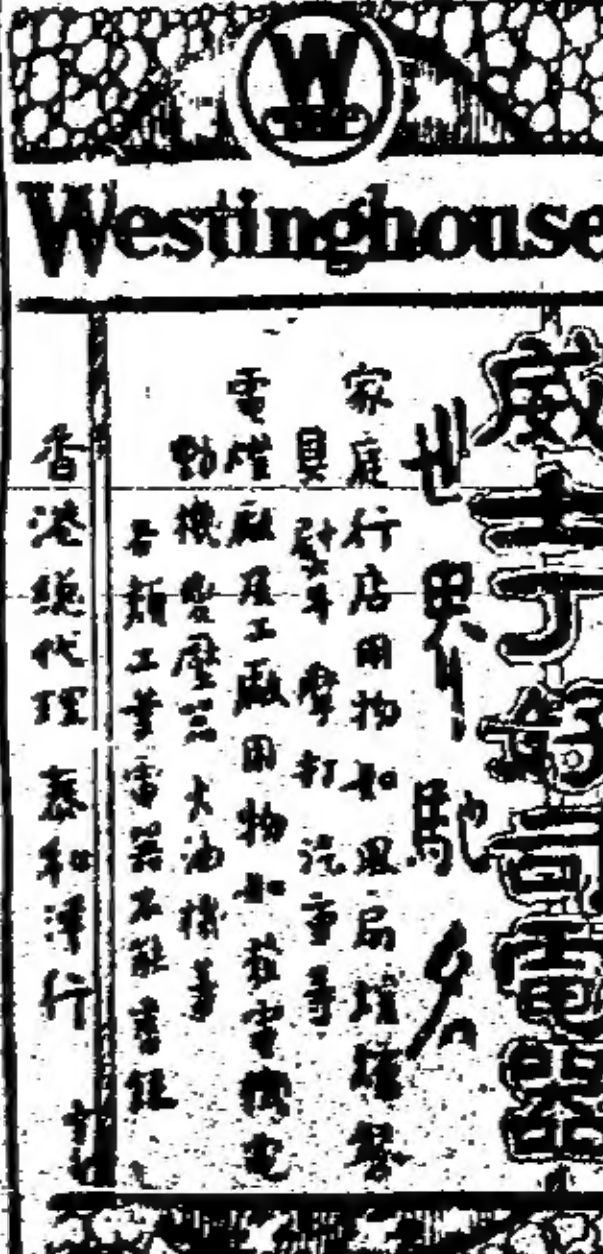 W
Westinghouse
威士丁好司電器
世界馳名
家庭行店用物如風扇燈膽
具 摩打汽車等
電燈廠及工廠用物如發電機電
動機變壓器火油機等
各類工業電器不能盡錄
香港總代理 泰和洋行